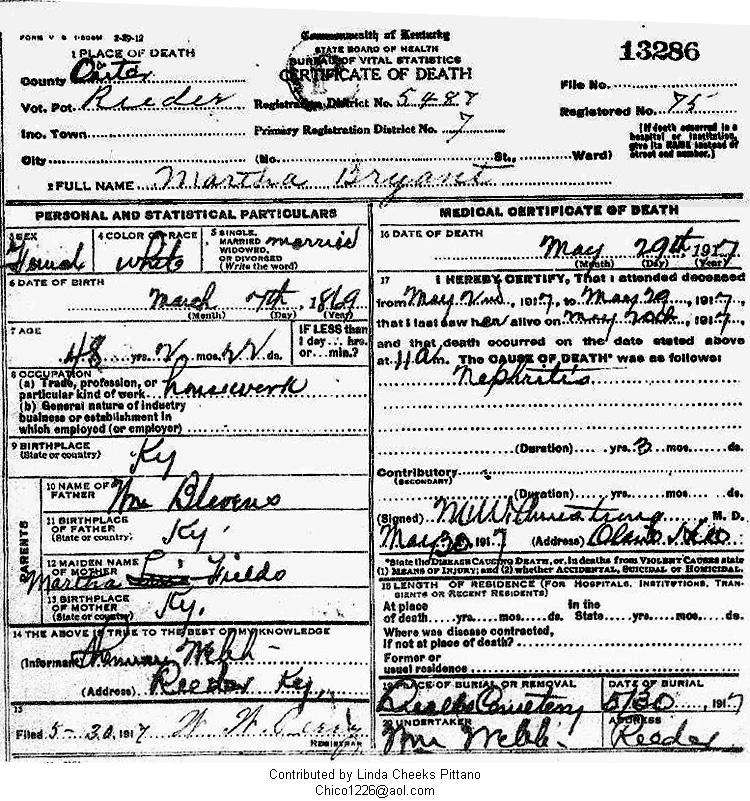 FORM V S 1-500M 2-29-12
Commonwealth of Kentucky
STATE BOARD OF HEALTH
BUREAU OF VITAL STATISTICS
CERTIFICATE OF DEATH
13286
1 PLACE OF DEATH
County Carter
Vot. Pct. Reeder
Inc. Town
City
Registration District No. 5487
Primary Registration District No. 7
File No.
Registered No. 75
(No. St., Ward)
[If death occurred in a hospital or institution, give its NAME instead of street and number.]
2 FULL NAME Martha Bryant
PERSONAL AND STATISTICAL PARTICULARS
3 SEX Femal
4 COLOR OR RACE white
5 SINGLE, MARRIED WIDOWED, OR DIVORCED (Write the word) married
6 DATE OF BIRTH
March 7th, 1869
(Month) (Day) (Year)
7 AGE
48 yrs. 2 mos. 22 ds.
IF LESS than 1 day... hrs. or... min.?
8 OCCUPATION
(a) Trade, profession, or particular kind of work housework
(b) General nature of industry
business or establishment in
which employed (or employer)
9 BIRTHPLACE
(State or country) Ky
PARENTS
10 NAME OF FATHER Wm Blevens
11 BIRTHPLACE OF FATHER (State or country) Ky.
12 MAIDEN NAME OF MOTHER Martha Fields
13 BIRTHPLACE OF MOTHER (State or country) Ky.
14 THE ABOVE IS TRUE TO THE BEST OF MY KNOWLEDGE
(Informant) Webb
(Address) Reeder Ky,
15
Filed 5-30, 1917 W. W.
REGISTRAR
MEDICAL CERTIFICATE OF DEATH
16 DATE OF DEATH
May 29th 1917
(Month) (Day) (Year)
17 I HEREBY CERTIFY, That I attended deceased
from May 2nd, 1917, to May 29, 1917,
that I last saw her alive on May 20th, 1917,
and that death occurred on the date stated above
at 11 am. The CAUSE OF DEATH* was as follows:
Nephritis
(Duration) yrs. 3 mos. ds.
Contributory
(SECONDARY)
(Duration) yrs. mos. ds.
(Signed) M. D.
May 30, 1917 (Address)
*State the DISEASE CAUSING DEATH, or, in deaths from VIOLENT CAUSES state
(1) MEANS OF INJURY; and (2) whether ACCIDENTAL, SUICIDAL or HOMICIDAL.
18 LENGTH OF RESIDENCE (FOR HOSPITALS, INSTITUTIONS, TRANSIENTS OR RECENT RESIDENTS)
At place of death yrs. mos. ds. In the State yrs. mos. ds.
Where was disease contracted,
if not at place of death?
Former or
usual residence
19 PLACE OF BURIAL OR REMOVAL
Cemetery
DATE OF BURIAL
5/30, 1917
20 UNDERTAKER
Wm Webb
ADDRESS
Reeder
Contributed by Linda Cheeks Pittano
Chico1226@aol.com